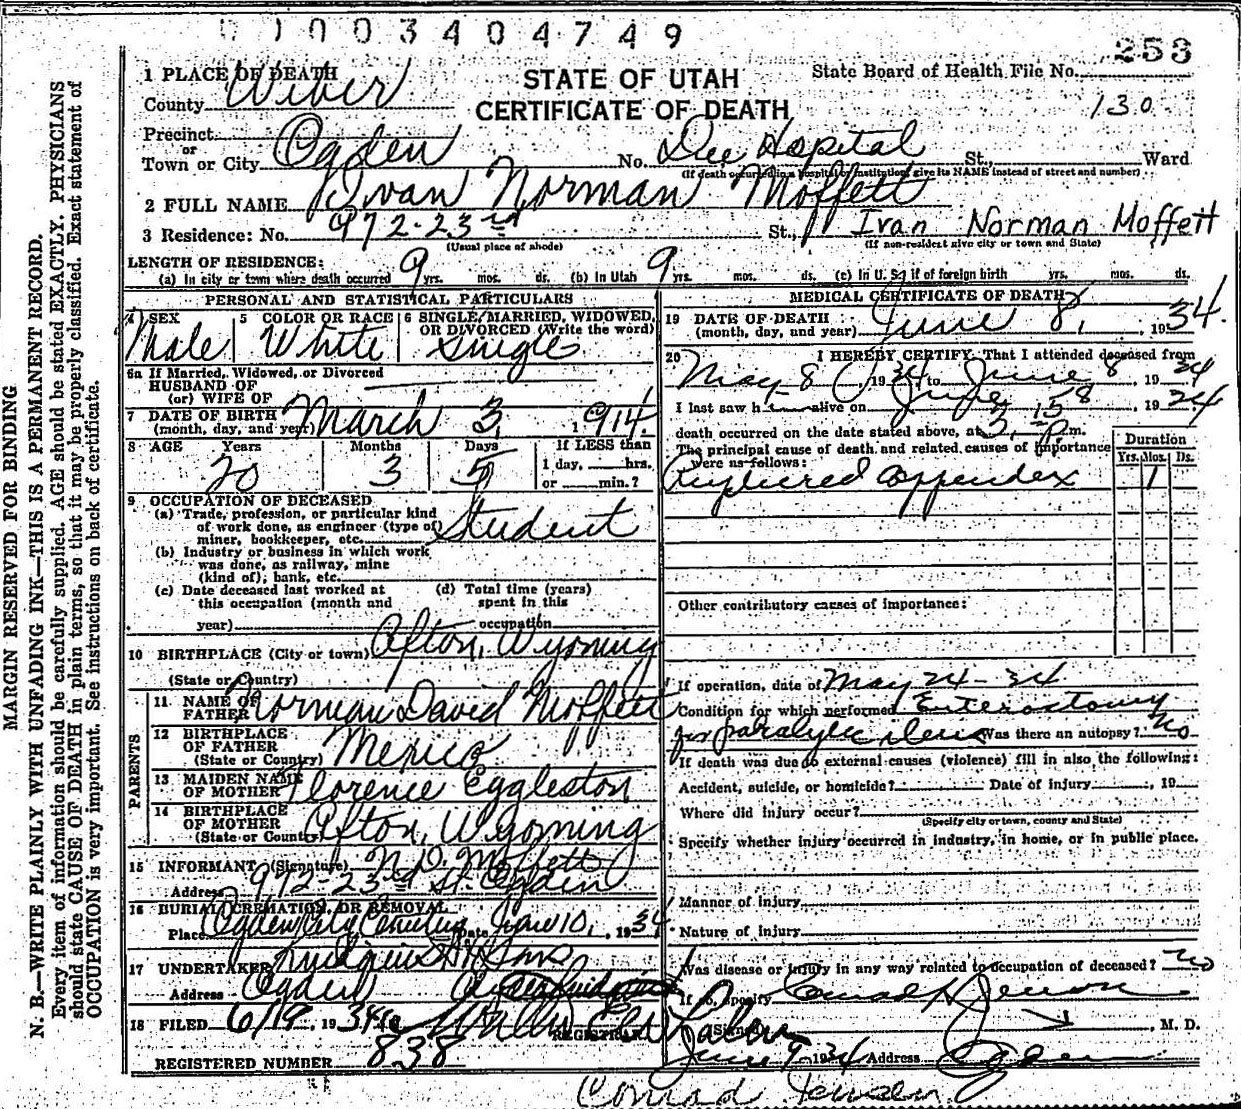 1003404749
253
1 PLACE OF DEATH
STATE OF UTAH
State Board of Health File No.
County Weber
CERTIFICATE OF DEATH
130
Precinct
or
Town or City Ogden No. Dee Hospital St., Ward
(If death occurred in a hospital or institution, give its NAME instead of street and number)
2 FULL NAME Ivan Norman Moffett
3 Residence: No. 972-23rd St., Ivan Norman Moffett
(Usual place of abode) (If non-resident give city or town and State)
LENGTH OF RESIDENCE:
(a) In city or town where death occurred 9 yrs. mos. ds. (b) In Utah 9 yrs. mos. ds. (c) In U. S. if of foreign birth yrs. mos. ds.
PERSONAL AND STATISTICAL PARTICULARS
4 SEX 5 COLOR OR RACE 6 SINGLE, MARRIED, WIDOWED, OR DIVORCED (Write the word)
Male White Single
6a If Married, Widowed, or Divorced
HUSBAND OF
(or) WIFE OF
7 DATE OF BIRTH
(month, day, and year) March 3, 1914
8 AGE Years Months Days If LESS than
20 3 5 1 day, hrs.
or min.?
9 OCCUPATION OF DECEASED
(a) Trade, profession, or particular kind
of work done, as engineer (type of)
miner, bookkeeper, etc. Student
(b) Industry or business in which work
was done, as railway, mine
(kind of), bank, etc.
(c) Date deceased last worked at
this occupation (month and
year)
(d) Total time (years)
spent in this
occupation
10 BIRTHPLACE (City or town) Afton, Wyoming
(State or Country)
PARENTS
11 NAME OF
FATHER Norman David Moffett
12 BIRTHPLACE
OF FATHER
(State or Country) Mexico
13 MAIDEN NAME
OF MOTHER Florence Eggleston
14 BIRTHPLACE
OF MOTHER
(State or Country) Afton, Wyoming
15 INFORMANT (Signature) N. D. Moffett
Address 972-23rd St. Ogden
16 BURIAL, CREMATION, OR REMOVAL
Place Ogden City Date June 10, 1934
17 UNDERTAKER & Sons
Address Ogden
18 FILED 6/19, 1934
REGISTRAR
REGISTERED NUMBER 838
MEDICAL CERTIFICATE OF DEATH
19 DATE OF DEATH
(month, day, and year) June 8, 1934.
20 I HEREBY CERTIFY, That I attended deceased from
May 8, 1934, to June 8, 1934
I last saw h alive on June 8, 1934
death occurred on the date stated above, at 3:15 P m.
The principal cause of death and related causes of importance
were as follows:
Duration
Yrs. Mos. Ds.
Ruptured appendex 1
Other contributory causes of importance:
If operation, date of May 24-34
Condition for which performed Enterostomy
for paralytic ileus Was there an autopsy? No
If death was due to external causes (violence) fill in also the following:
Accident, suicide, or homicide? Date of injury , 19
Where did injury occur?
(Specify city or town, county and State)
Specify whether injury occurred in industry, in home, or in public place.
Manner of injury
Nature of injury
Was disease or injury in any way related to occupation of deceased? No
If so, specify
(Signed) Conrad H Jenson, M. D.
June 9 1934 Address Ogden
Conrad Jensen
MARGIN RESERVED FOR BINDING
N. B.—WRITE PLAINLY WITH UNFADING INK—THIS IS A PERMANENT RECORD.
Every item of information should be carefully supplied. AGE should be stated EXACTLY. PHYSICIANS
should state CAUSE OF DEATH in plain terms, so that it may be properly classified. Exact statement of
OCCUPATION is very important. See instructions on back of certificate.